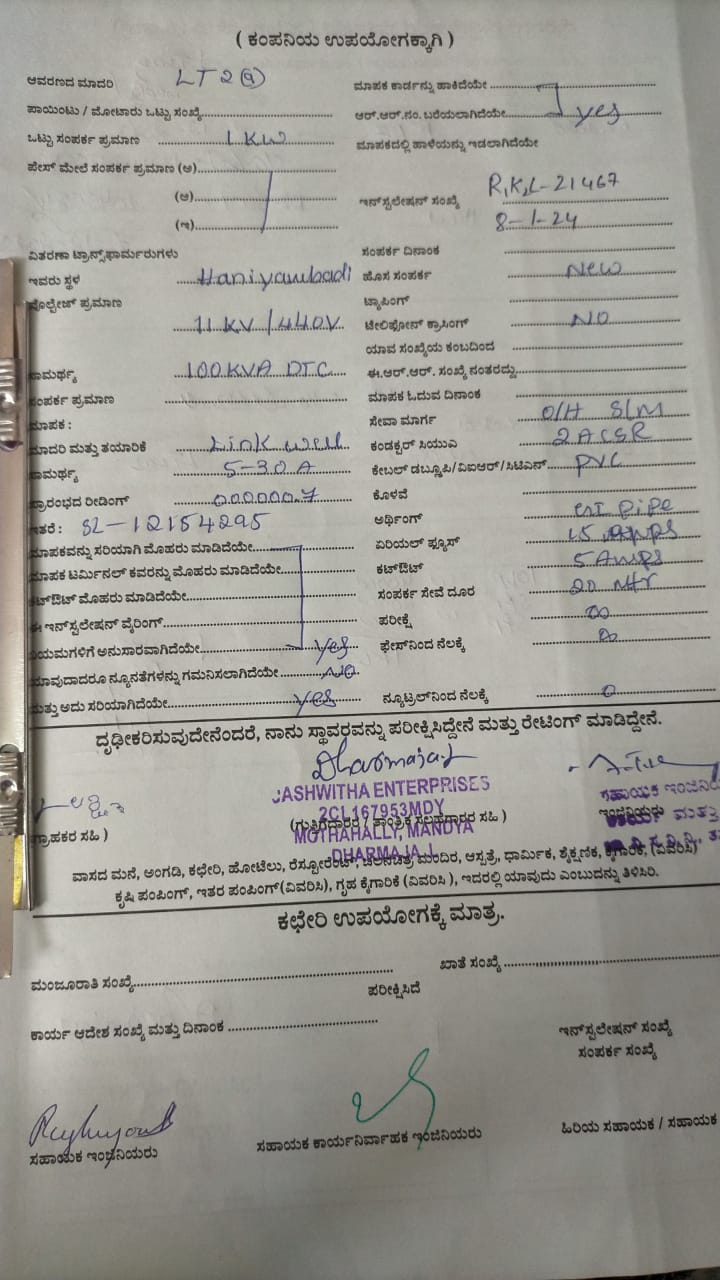 ( ಕಂಪನಿಯ ಉಪಯೋಗಕ್ಕಾಗಿ )
ಆವರಣದ ಮಾದರಿ LT2(a)
ಮಾಪಕ ಕಾರ್ಡನ್ನು ಹಾಕಿದೆಯೇ
ಪಾಯಿಂಟು / ಮೋಟಾರು ಒಟ್ಟು ಸಂಖ್ಯೆ
ಆರ್.ಆರ್.ನಂ. ಬರೆಯಲಾಗಿದೆಯೇ yes
ಒಟ್ಟು ಸಂಪರ್ಕ ಪ್ರಮಾಣ 1 KW
ಮಾಪಕದಲ್ಲಿ ಹಾಳೆಯನ್ನು ಇಡಲಾಗಿದೆಯೇ
ಫೇಸ್ ಮೇಲೆ ಸಂಪರ್ಕ ಪ್ರಮಾಣ (ಅ)
(ಆ)
(ಇ)
ಇನ್‌ಸ್ಟಲೇಷನ್ ಸಂಖ್ಯೆ R,K,L-21467
8-1-24
ವಿತರಣಾ ಟ್ರಾನ್ಸ್‌ಫಾರ್ಮರುಗಳು
ಸಂಪರ್ಕ ದಿನಾಂಕ
ಇವರು ಸ್ಥಳ Haniyambadi
ಹೊಸ ಸಂಪರ್ಕ New
ವೋಲ್ಟೇಜ್ ಪ್ರಮಾಣ
ಟ್ಯಾಪಿಂಗ್
11 KV / 440V
ಟೆಲಿಫೋನ್ ಕ್ರಾಸಿಂಗ್ NO
ಯಾವ ಸಂಖ್ಯೆಯ ಕಂಬದಿಂದ
ಸಾಮರ್ಥ್ಯ 100KVA DTC
ಈ.ಆರ್.ಆರ್. ಸಂಖ್ಯೆ ನಂತರದ್ದು
ಸಂಪರ್ಕ ಪ್ರಮಾಣ
ಮಾಪಕ ಓದುವ ದಿನಾಂಕ
ಮಾಪಕ :
ಸೇವಾ ಮಾರ್ಗ O/H SLM
ಮಾದರಿ ಮತ್ತು ತಯಾರಿಕೆ Linkwell
ಕಂಡಕ್ಟರ್ ಸಿಯುಎ 2ACSR
ಸಾಮರ್ಥ್ಯ 5-30A
ಕೇಬಲ್ ಡಬ್ಲೂಪಿ/ವಿಐಆರ್/ಸಿಟಿಎಸ್ PVC
ಪ್ರಾರಂಭದ ರೀಡಿಂಗ್ 000000.7
ಕೊಳವೆ
ಇತರೆ : SL-12154295
ಅರ್ಥಿಂಗ್ GI pipe
ಮಾಪಕವನ್ನು ಸರಿಯಾಗಿ ಮೊಹರು ಮಾಡಿದೆಯೇ
ಏರಿಯಲ್ ಫ್ಯೂಸ್ 15 Amps
ಮಾಪಕ ಟರ್ಮಿನಲ್ ಕವರನ್ನು ಮೊಹರು ಮಾಡಿದೆಯೇ
ಕಟ್‌ಔಟ್ 5 Amps
ಕಟ್‌ಔಟ್ ಮೊಹರು ಮಾಡಿದೆಯೇ
ಸಂಪರ್ಕ ಸೇವೆ ದೂರ 20 Mtr
ಈ ಇನ್‌ಸ್ಟಲೇಷನ್ ವೈರಿಂಗ್
ಪರೀಕ್ಷೆ ∞
ನಿಯಮಗಳಿಗೆ ಅನುಸಾರವಾಗಿದೆಯೇ yes
ಫೇಸ್‌ನಿಂದ ನೆಲಕ್ಕೆ ∞
ಯಾವುದಾದರೂ ನ್ಯೂನತೆಗಳನ್ನು ಗಮನಿಸಲಾಗಿದೆಯೇ NO
ಮತ್ತು ಅದು ಸರಿಯಾಗಿದೆಯೇ yes
ನ್ಯೂಟ್ರಲ್‌ನಿಂದ ನೆಲಕ್ಕೆ 0
ದೃಢೀಕರಿಸುವುದೇನೆಂದರೆ, ನಾನು ಸ್ಥಾವರವನ್ನು ಪರೀಕ್ಷಿಸಿದ್ದೇನೆ ಮತ್ತು ರೇಟಿಂಗ್ ಮಾಡಿದ್ದೇನೆ.
Dharmaja L
JASHWITHA ENTERPRISES
2CL167953MDY
MOTHAHALLY, MANDYA
DHARMAJA.L
ಸಹಾಯಕ ಇಂಜಿನಿಯ
ಗ್ರಾಹಕರ ಸಹಿ )
(ಗುತ್ತಿಗೆದಾರರ / ತಾಂತ್ರಿಕ ಸಲಹಗಾರರ ಸಹಿ )
ಇಂಜಿನಿಯರು
ವಾಸದ ಮನೆ, ಅಂಗಡಿ, ಕಛೇರಿ, ಹೋಟೆಲು, ರೆಸ್ಟೋರೆಂಟ್, ಚಲನಚಿತ್ರ ಮಂದಿರ, ಆಸ್ಪತ್ರೆ, ಧಾರ್ಮಿಕ, ಶೈಕ್ಷಣಿಕ, ಕೈಗಾರಿಕೆ, (ವಿವರಿಸಿ)
ಕೃಷಿ ಪಂಪಿಂಗ್, ಇತರ ಪಂಪಿಂಗ್(ವಿವರಿಸಿ), ಗೃಹ ಕೈಗಾರಿಕೆ (ವಿವರಿಸಿ ), ಇದರಲ್ಲಿ ಯಾವುದು ಎಂಬುದನ್ನು ತಿಳಿಸಿರಿ.
ಕಛೇರಿ ಉಪಯೋಗಕ್ಕೆ ಮಾತ್ರ.
ಮಂಜೂರಾತಿ ಸಂಖ್ಯೆ
ಖಾತೆ ಸಂಖ್ಯೆ
ಪರೀಕ್ಷಿಸಿದೆ
ಕಾರ್ಯ ಆದೇಶ ಸಂಖ್ಯೆ ಮತ್ತು ದಿನಾಂಕ
ಇನ್‌ಸ್ಟಲೇಷನ್ ಸಂಖ್ಯೆ
ಸಂಪರ್ಕ ಸಂಖ್ಯೆ
ಸಹಾಯಕ ಇಂಜಿನಿಯರು
ಸಹಾಯಕ ಕಾರ್ಯನಿರ್ವಾಹಕ ಇಂಜಿನಿಯರು
ಹಿರಿಯ ಸಹಾಯಕ / ಸಹಾಯಕ